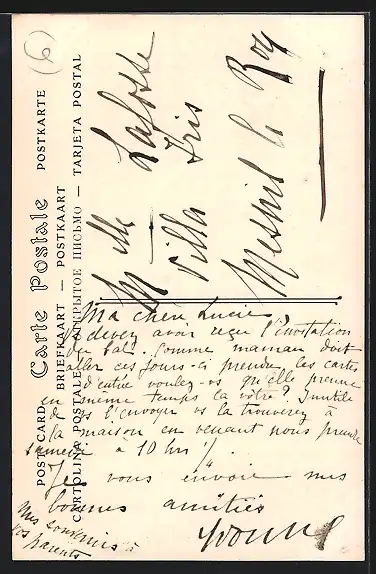 (6)
POSTCARD Carte Postale POSTKARTE
BRIEFKAART — POSTKAART
CARTOLINA POSTALE ОТКРЫТОЕ ПИСЬМО — TARJETA POSTAL
Mlle Lafosse
Villa Iris
Mesnil le Roy
Ma chère Lucie,
devez avoir reçu l'invitation
du bal. Comme maman doit
aller ces jours-ci prendre les cartes
d'entrée voulez-vs qu'elle prenne
en même temps la vôtre? Inutile
de vs l'envoyer vs la trouverez à
la maison en venant nous prendre
samedi à 10 hrs /.
Je vous envoie mes
bonnes amitiés
Yvonne
Mes souvenirs à
vos parents